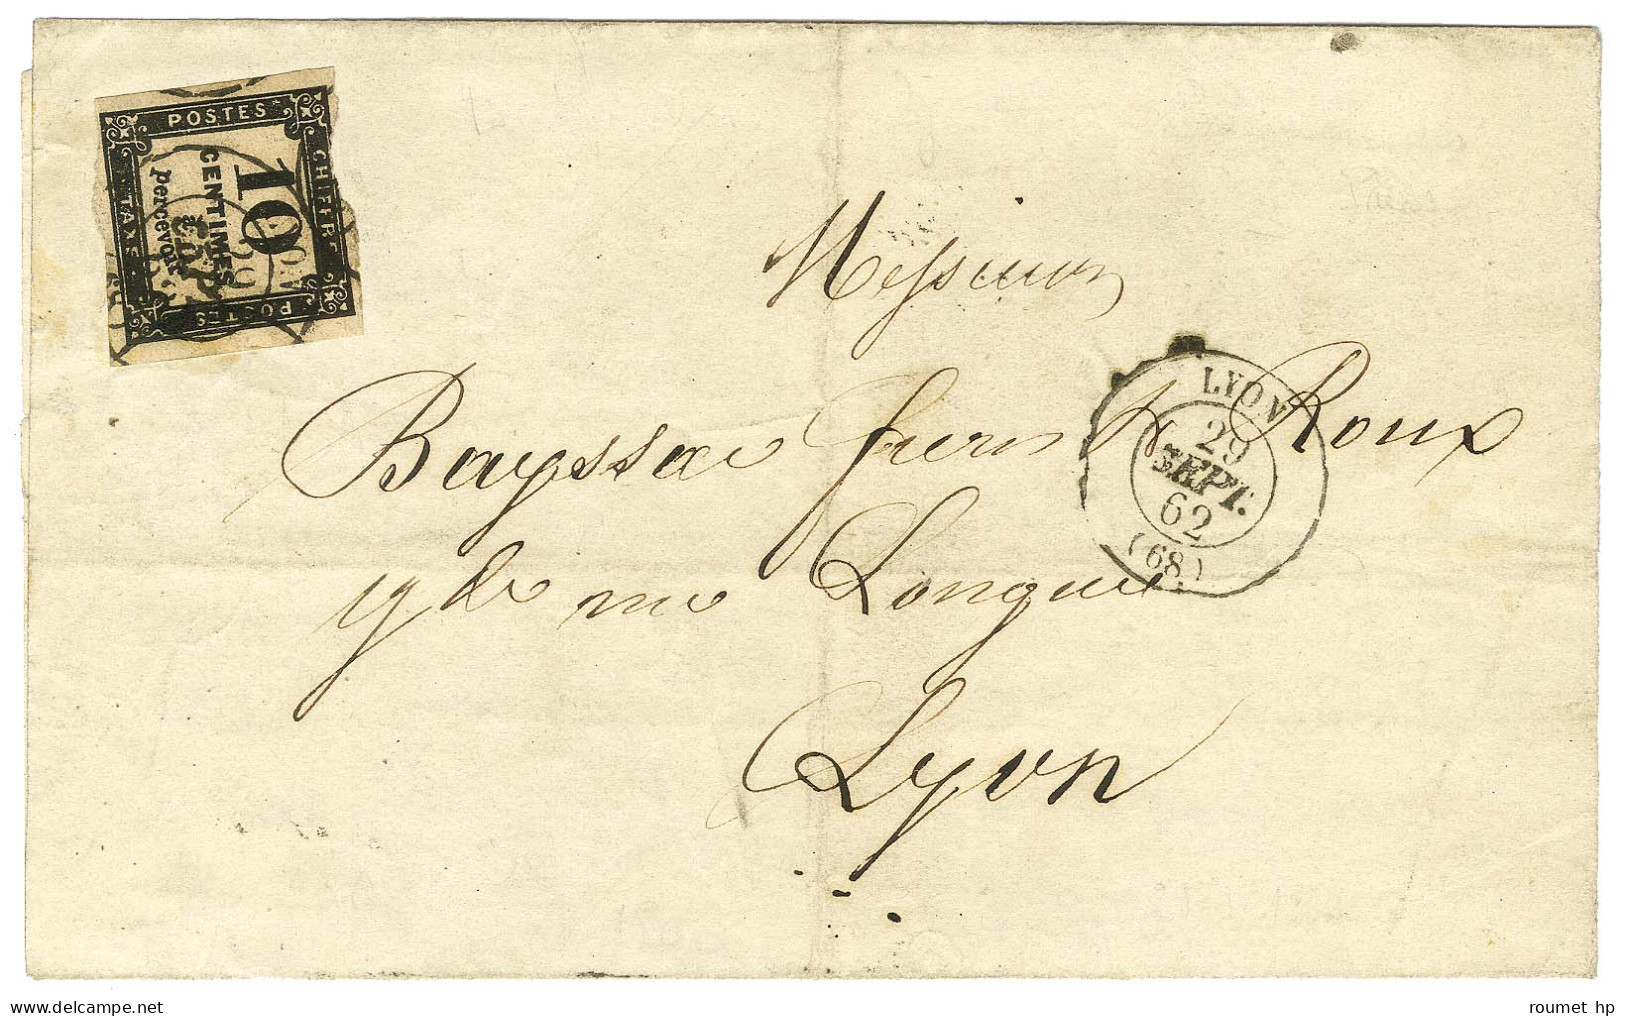 POSTES
CHIFFRE
TAXE
POSTES
10
CENTIMES
percevoir
29
SEPT.
Messieurs
LYON
29
SEPT.
62
(68)
Bayssac frères & Roux
de rue Longue
Lyon
roumet hp